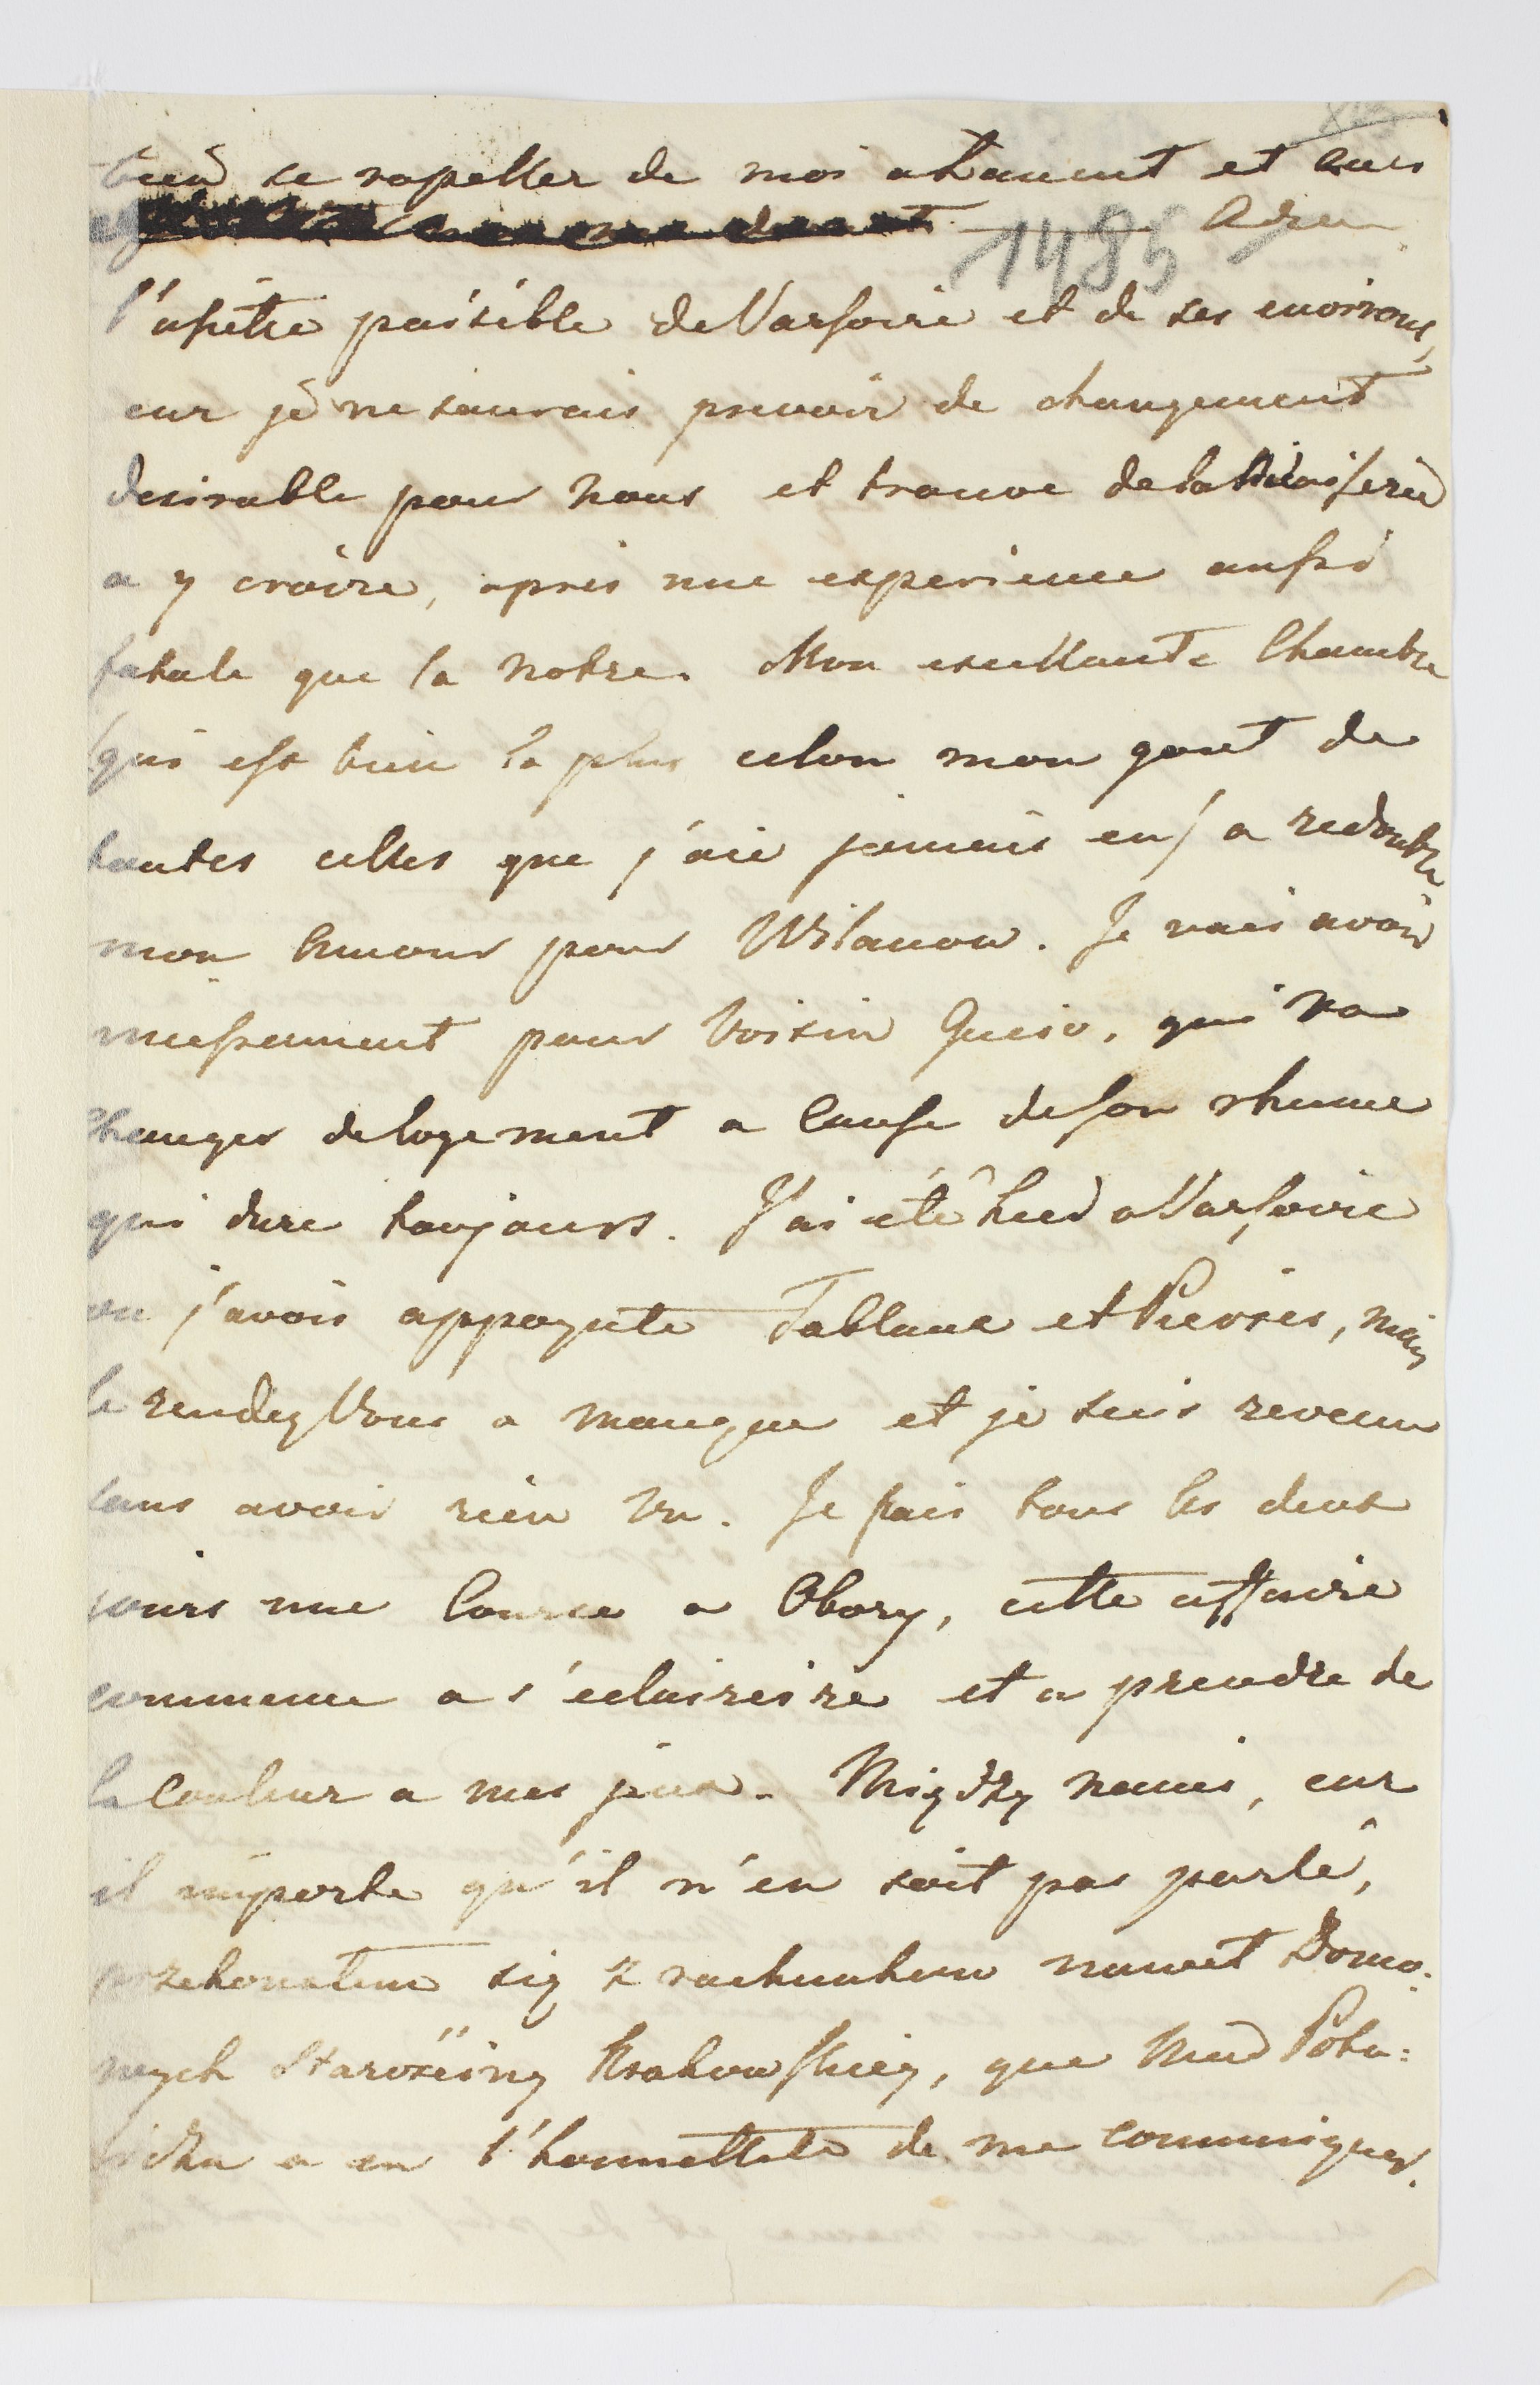 bien se rapeller de moi a tauent et aues
1485 Adieu
l'apôtre paisible de Varsovie et de ses environs,
car je ne saurais prevoir de changement
desirable pour nous et trouve de la niaiserie
a y croire, apres une experience aussi
fatale que la notre. Mon exellante Chambre
(qui est bien la plus celon mon gout de
toutes celles que j'aie jamais eu) a redouble
mon Amour pour Wilanow. Je vais avoir
incessament pour Voisin qui va
changer de logement a Cause de son rhume
qui dure toujours. J'ai été hier a Varsovie
ou j'avois appoynte Jablone et mais
le rendez Vous a manque et je suis revenu
sans avoir rien vu. Je fais tous les deux
jours une Course a Obory, cette affaire
commence a s'eclaircire et a prendre de
la Couleur a mes jeux. Między nami, car
il importe qu'il n'en soit pas parlé,
przekonałem się z rachunków nawet Domo:
wych Starościny Krakowskiey, que Mad Poto:
icka a eu l'honnetteté de me communiquer.